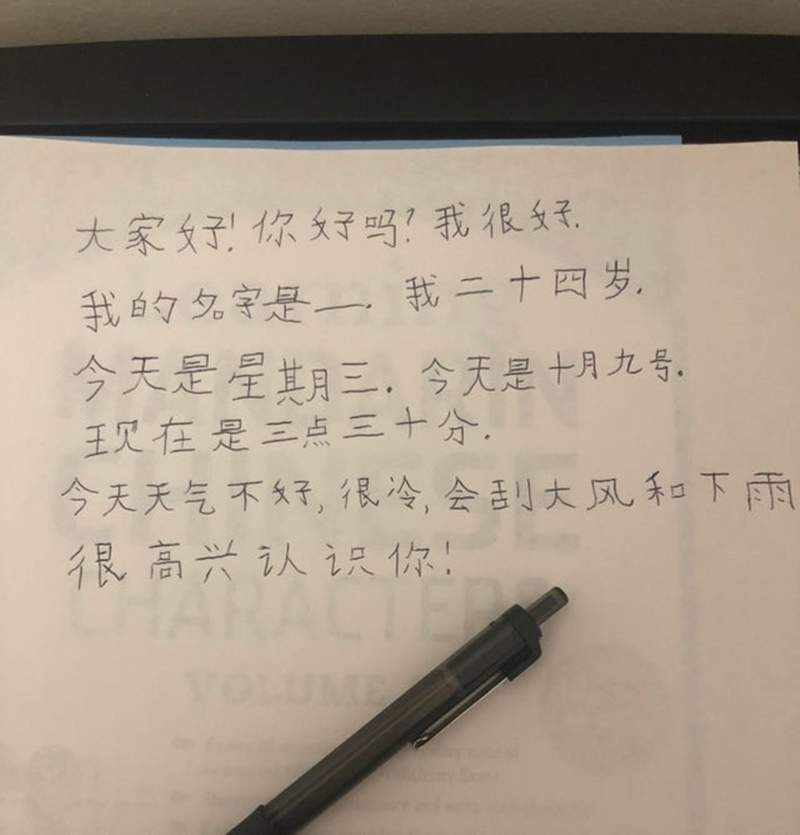 大家好! 你好吗? 我很好.
我的名字是__. 我二十四岁.
今天是星期三. 今天是十月九号.
现在是三点三十分.
今天天气不好, 很冷, 会刮大风和下雨
很高兴认识你!
CHINESE
CHARACTERS
VOLUME